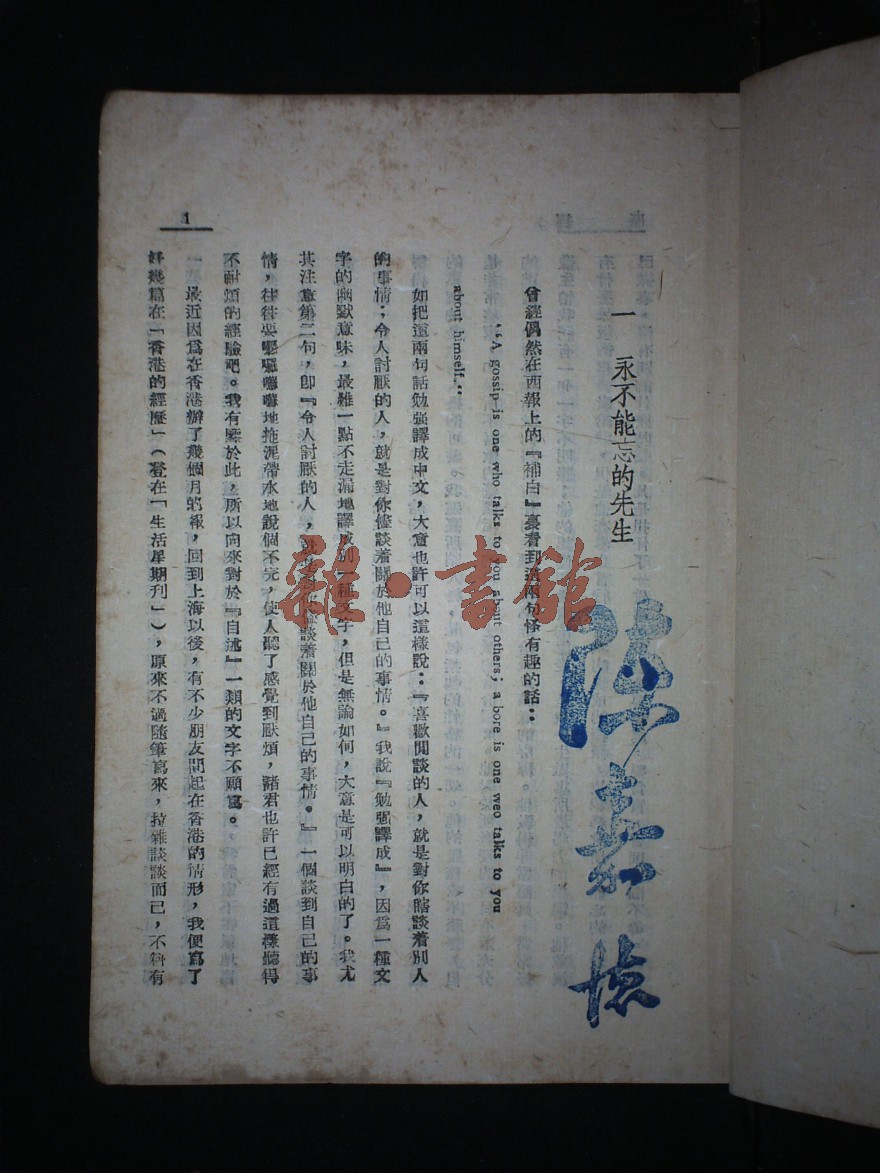 一　永不能忘的先生
曾經偶然在西報上的『補白』裏看到這兩句怪有趣的話：
“A gossip is one who talks to you about others; a bore is one weo talks to you
about himself.”
如把這兩句話勉强譯成中文，大意也許可以這樣說：『喜歡閒談的人，就是對你瞎談着別人
的事情；令人討厭的人，就是對你僅談着關於他自己的事情。』我說『勉强譯成』，因爲一種文
字的幽默意味，最難一點不走漏地譯成別一種文字，但是無論如何，大意是可以明白的了。我尤
其注意第二句，卽『令人討厭的人，就是對你僅談着關於他自己的事情。』一個談到自己的事
情，往往要囉囉囌囌地拖泥帶水地說個不完，使人聽了感覺到厭煩，諸君也許已經有過這樣聽得
不耐煩的經驗吧。我有鑒於此，所以向來對於『自述』一類的文字不願寫。
最近因爲在香港辦了幾個月的報，回到上海以後，有不少朋友問起在香港的情形，我便寫了
好幾篇在「香港的經歷」（登在「生活星期刊」），原來不過隨筆寫來，拉雜談談而已，不料有
1
雜·書館
陳嘉